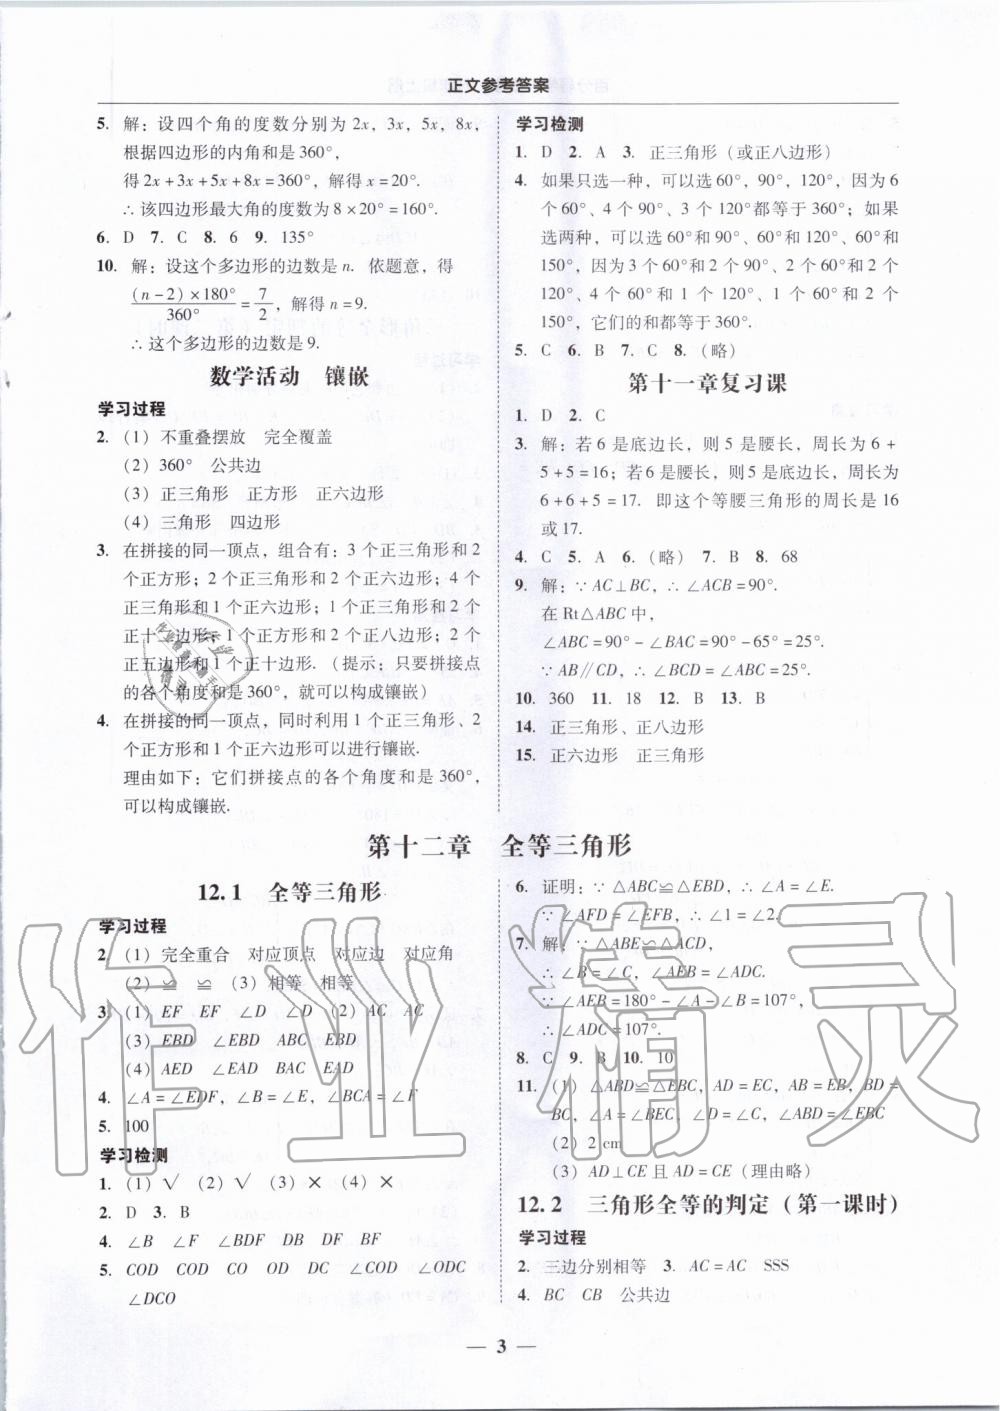 正文参考答案
5. 解：设四个角的度数分别为 2x，3x，5x，8x，
根据四边形的内角和是 360°，
得 2x+3x+5x+8x=360°，解得 x=20°.
∴ 该四边形最大角的度数为 8×20°=160°.
6. D 7. C 8. 6 9. 135°
10. 解：设这个多边形的边数是 n. 依题意，得
(n-2)×180°/360° = 7/2，解得 n=9.
∴ 这个多边形的边数是 9.
数学活动 镶嵌
学习过程
2. （1）不重叠摆放 完全覆盖
（2）360° 公共边
（3）正三角形 正方形 正六边形
（4）三角形 四边形
3. 在拼接的同一顶点，组合有：3 个正三角形和 2
个正方形；2 个正三角形和 2 个正六边形；4 个
正三角形和 1 个正六边形；1 个正三角形和 2 个
正十二边形；1 个正方形和 2 个正八边形；2 个
正五边形和 1 个正十边形.（提示：只要拼接点
的各个角度和是 360°，就可以构成镶嵌）
4. 在拼接的同一顶点，同时利用 1 个正三角形、2
个正方形和 1 个正六边形可以进行镶嵌.
理由如下：它们拼接点的各个角度和是 360°，
可以构成镶嵌.
学习检测
1. D 2. A 3. 正三角形（或正八边形）
4. 如果只选一种，可以选 60°，90°，120°，因为 6
个 60°、4 个 90°、3 个 120°都等于 360°；如果
选两种，可以选 60°和 90°、60°和 120°、60°和
150°，因为 3 个 60°和 2 个 90°、2 个 60°和 2 个
120°、4 个 60°和 1 个 120°、1 个 60°和 2 个
150°，它们的和都等于 360°.
5. C 6. B 7. C 8.（略）
第十一章复习课
1. D 2. C
3. 解：若 6 是底边长，则 5 是腰长，周长为 6+
5+5=16；若 6 是腰长，则 5 是底边长，周长为
6+6+5=17. 即这个等腰三角形的周长是 16
或 17.
4. C 5. A 6.（略） 7. B 8. 68
9. 解：∵ AC⊥BC，∴ ∠ACB=90°.
在 Rt△ABC 中，
∠ABC=90°-∠BAC=90°-65°=25°.
∵ AB∥CD，∴ ∠BCD=∠ABC=25°.
10. 360 11. 18 12. B 13. B
14. 正三角形、正八边形
15. 正六边形 正三角形
第十二章 全等三角形
12.1 全等三角形
学习过程
2. （1）完全重合 对应顶点 对应边 对应角
（2）≌ ≌ （3）相等 相等
3. （1）EF EF ∠D ∠D （2）AC AC
（3）EBD ∠EBD ABC EBD
（4）AED ∠EAD BAC EAD
4. ∠A=∠EDF，∠B=∠E，∠BCA=∠F
5. 100
学习检测
1. （1）√ （2）√ （3）× （4）×
2. D 3. B
4. ∠B ∠F ∠BDF DB DF BF
5. COD COD CO OD DC ∠COD ∠ODC
∠DCO
6. 证明：∵ △ABC≌△EBD，∴ ∠A=∠E.
∵ ∠AFD=∠EFB，∴ ∠1=∠2.
7. 解：∵ △ABE≌△ACD，
∴ ∠B=∠C，∠AEB=∠ADC.
∵ ∠AEB=180°-∠A-∠B=107°，
∴ ∠ADC=107°.
8. C 9. B 10. 10
11. （1）△ABD≌△EBC，AD=EC，AB=EB，BD=
BC，∠A=∠BEC，∠D=∠C，∠ABD=∠EBC
（2）2 cm
（3）AD⊥CE 且 AD=CE（理由略）
12.2 三角形全等的判定（第一课时）
学习过程
2. 三边分别相等 3. AC=AC SSS
4. BC CB 公共边
— 3 —
作业精灵